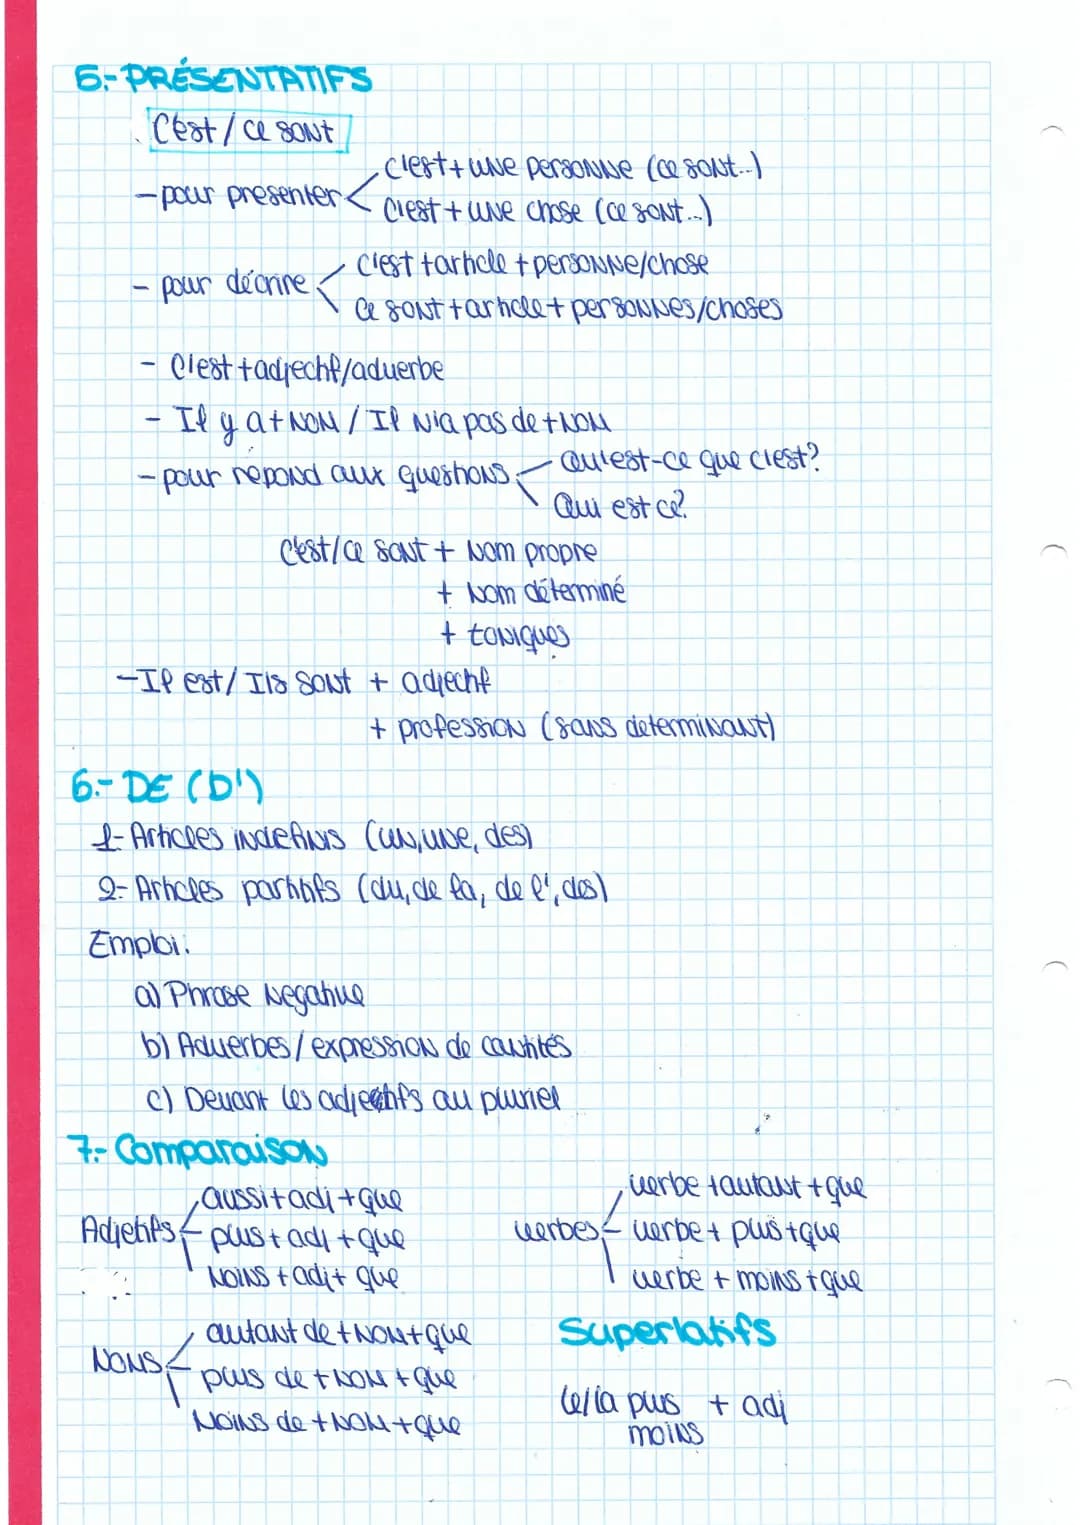 5.- PRÉSENTATIFS
C'est / ce sont
- pour presenter
c'est + une personne (ce sont...)
c'est + une chose (ce sont...)
- pour décrire
c'est + article + personne/chose
ce sont + article + personnes/choses
- C'est + adjectif/adverbe
- Il y a + NOM / Il n'a pas de + NOM
- pour répond aux questions
Qu'est-ce que c'est?
Qui est ce?
C'est/ce sont + Nom propre
+ Nom déterminé
+ toniques
- Il est / Ils sont + adjectif
+ profession (sans determinant)
6.- DE (D')
1- Articles indefinis (un, une, des)
2- Articles partitifs (du, de la, de l', des)
Emploi:
a) Phrase Negative
b) Adverbes / expression de cantités
c) Devant les adjectifs au pluriel
7.- Comparaison
Adjetifs
aussi + adj + que
plus + adj + que
Moins + adj + que
verbes
verbe + autant + que
verbe + plus + que
verbe + moins + que
NOMS
autant de + NOM + que
plus de + NOM + que
Moins de + NOM + que
Superlatifs
le/la plus + adj
moins